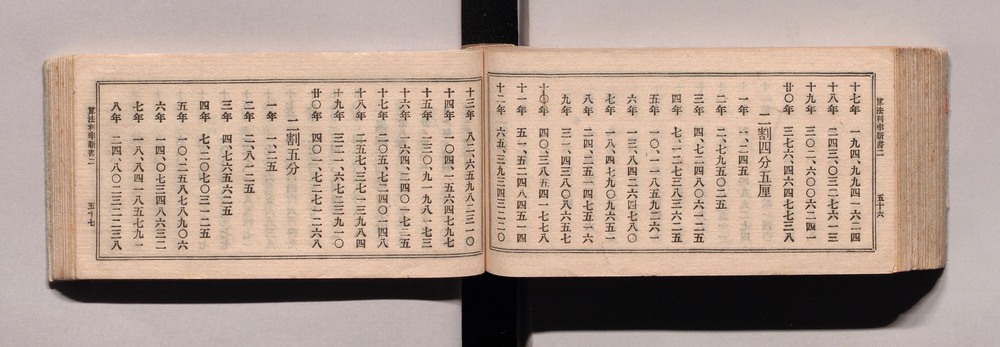 十七年 一九四、九九四一六二四
十八年 二四三、〇三二七六一三
十九年 三〇二、六〇〇六二四一
廿〇年 三七六、四六四七七三八
二割四分五厘
一年 一、二四五
二年 二、七九五〇二五
三年 四、七二四八〇六一二五
四年 七、一二七三八三六二五
五年 一〇、一一八五九二六一
六年 一三、八四二六四七八〇
七年 一八、四七九〇九六五一
八年 二四、二五一四七五一六
九年 三一、四三八〇八六五七
十〇年 四〇、三八五四一七七八
十一年 五一、五二四八四五一四
十二年 六五、三九三四三二二〇
五十六
十三年 八二、六五九八二三一〇
十四年 一〇四、一五六四七九七
十五年 一三〇、九一九八一七三
十六年 一六四、二四〇一七二五
十七年 二〇五、七二四〇一四八
十八年 二五七、三七一三九八四
十九年 三二一、六七二三九一〇
廿〇年 四〇一、七二七一二六八
二割五分
一年 一、二五
二年 二、八一二五
三年 四、七六五六二五
四年 七、二〇七〇三一二五
五年 一〇、二五八七八九〇六
六年 一四、〇七三四八六三二
七年 一八、八四一八五七九一
八年 二四、八〇二三二二三八
五十七